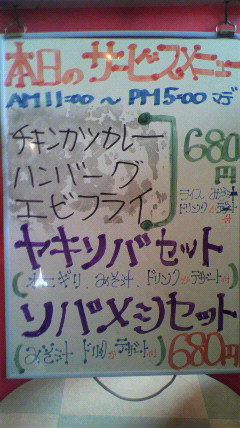 本日のサービスメニュー
AM 11:00 ～ PM 5:00 マデ
チキンカツカレー
ハンバーグ
エビフライ
680円
ライス みそ汁
ドリンク
ヤキソバセット
(オニギリ、みそ汁、ドリンク or デザート付)
ソバメシセット
(みそ汁 ドリンク or デザート付) 680円